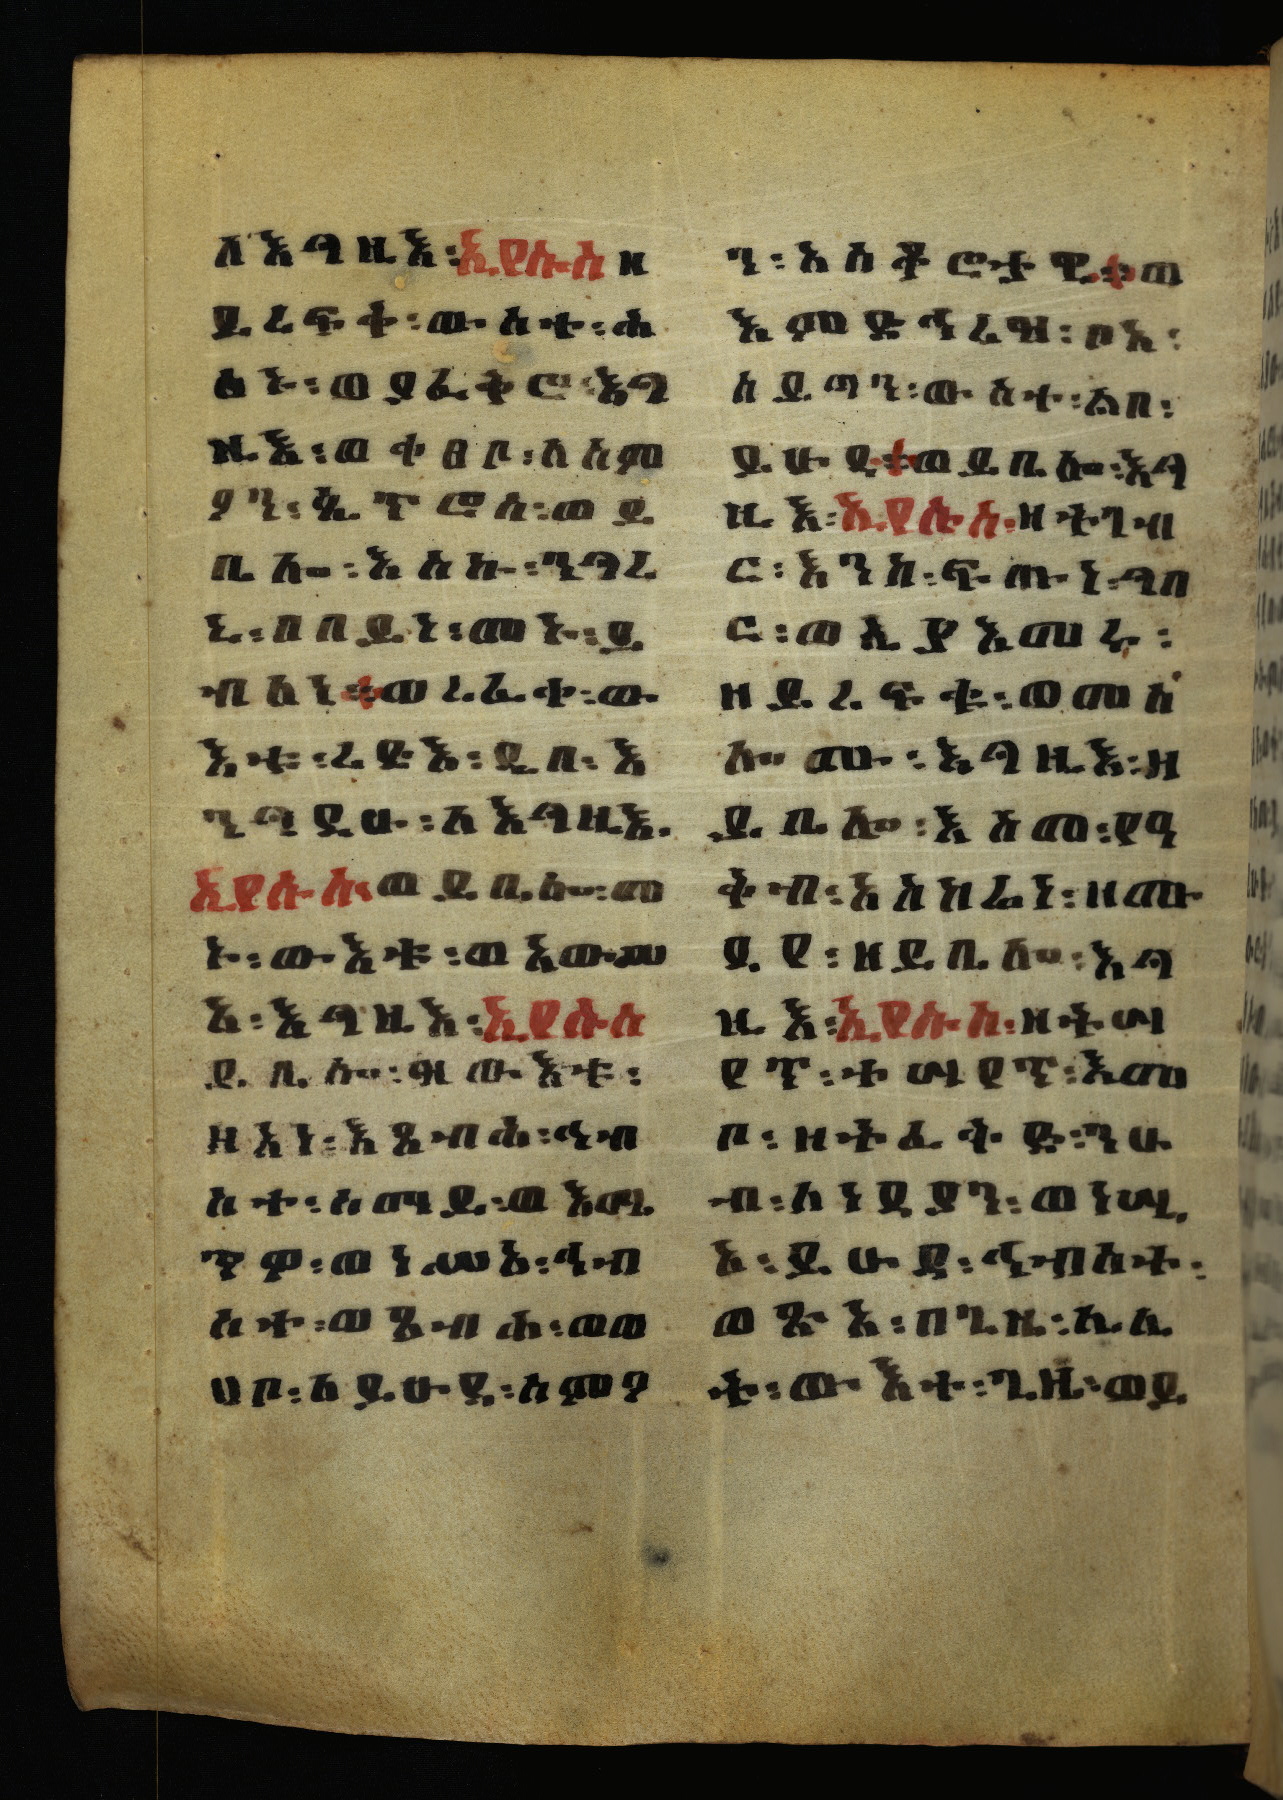 ለእግዚእ፡ኢየሱስ፡ዘ
ያረፍቅ፡ውስተ፡ሕ
ፅኑ፡ወያፈቅሮ፡እግ
ዚእ፡ወቀፀቦ፡ለስም
ዖን፡ጴጥሮስ፡ወይ
ቤሎ፡እስኩ፡ንግረ
ኒ፡በበይነ፡መኑ፡ይ
ብለነ፡ወረፈቀ፡ው
እቱ፡ረድእ፡ዲበ፡እ
ንግድዓሁ፡ለእግዚእ፡
ኢየሱስ፡ወይቤሎ፡መ
ኑ፡ውእቱ፡ወአውሥ
አ፡እግዚእ፡ኢየሱስ
ይቤሎ፡ዝውእቱ፡
ዘአነ፡እጸብሕ፡ኅብ
ስተ፡ለማይ፡ወእሜ
ጥዎ፡ወነሥአ፡ኅብ
ስተ፡ወጸብሐ፡ወወ
ሀቦ፡ለይሁዳ፡ስምዖ
ን፡አስቆሮቷዊ፡ወ
እምድኅረዝ፡ቦአ፡
ሰይጣን፡ውስተ፡ልበ፡
ይሁዳ፡ወይቤሎ፡እግ
ዚእ፡ኢየሱስ፡ዘትገብ
ር፡እንከ፡ፍጡነ፡ግበ
ር፡ወኢያእመሩ፡
ዘይረፍቁ፡ወመስ
ሎሙ፡እግዚእ፡ዘ
ይቤሎ፡እስመ፡የዓ
ቅብ፡አስከሬነ፡ዘሙ
ዳየ፡ዘይቤሎ፡እግ
ዚእ፡ኢየሱስ፡ዘትሣ
የጥ፡ተሣየጥ፡እመ
ቦ፡ዘትፈቅድ፡ንሁ
ብ፡ለነዳያን፡ወነሢ
ኦ፡ይሁዳ፡ኅብስተ፡
ወጽአ፡በጊዜ፡ሌሊ
ት፡ውእተ፡ጊዜ፡ወይ